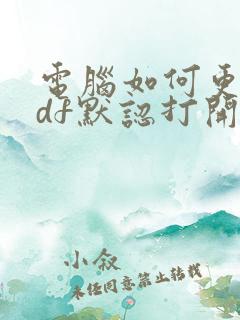 電腦如何更
df默認打開
小叙
未经同意禁止转载